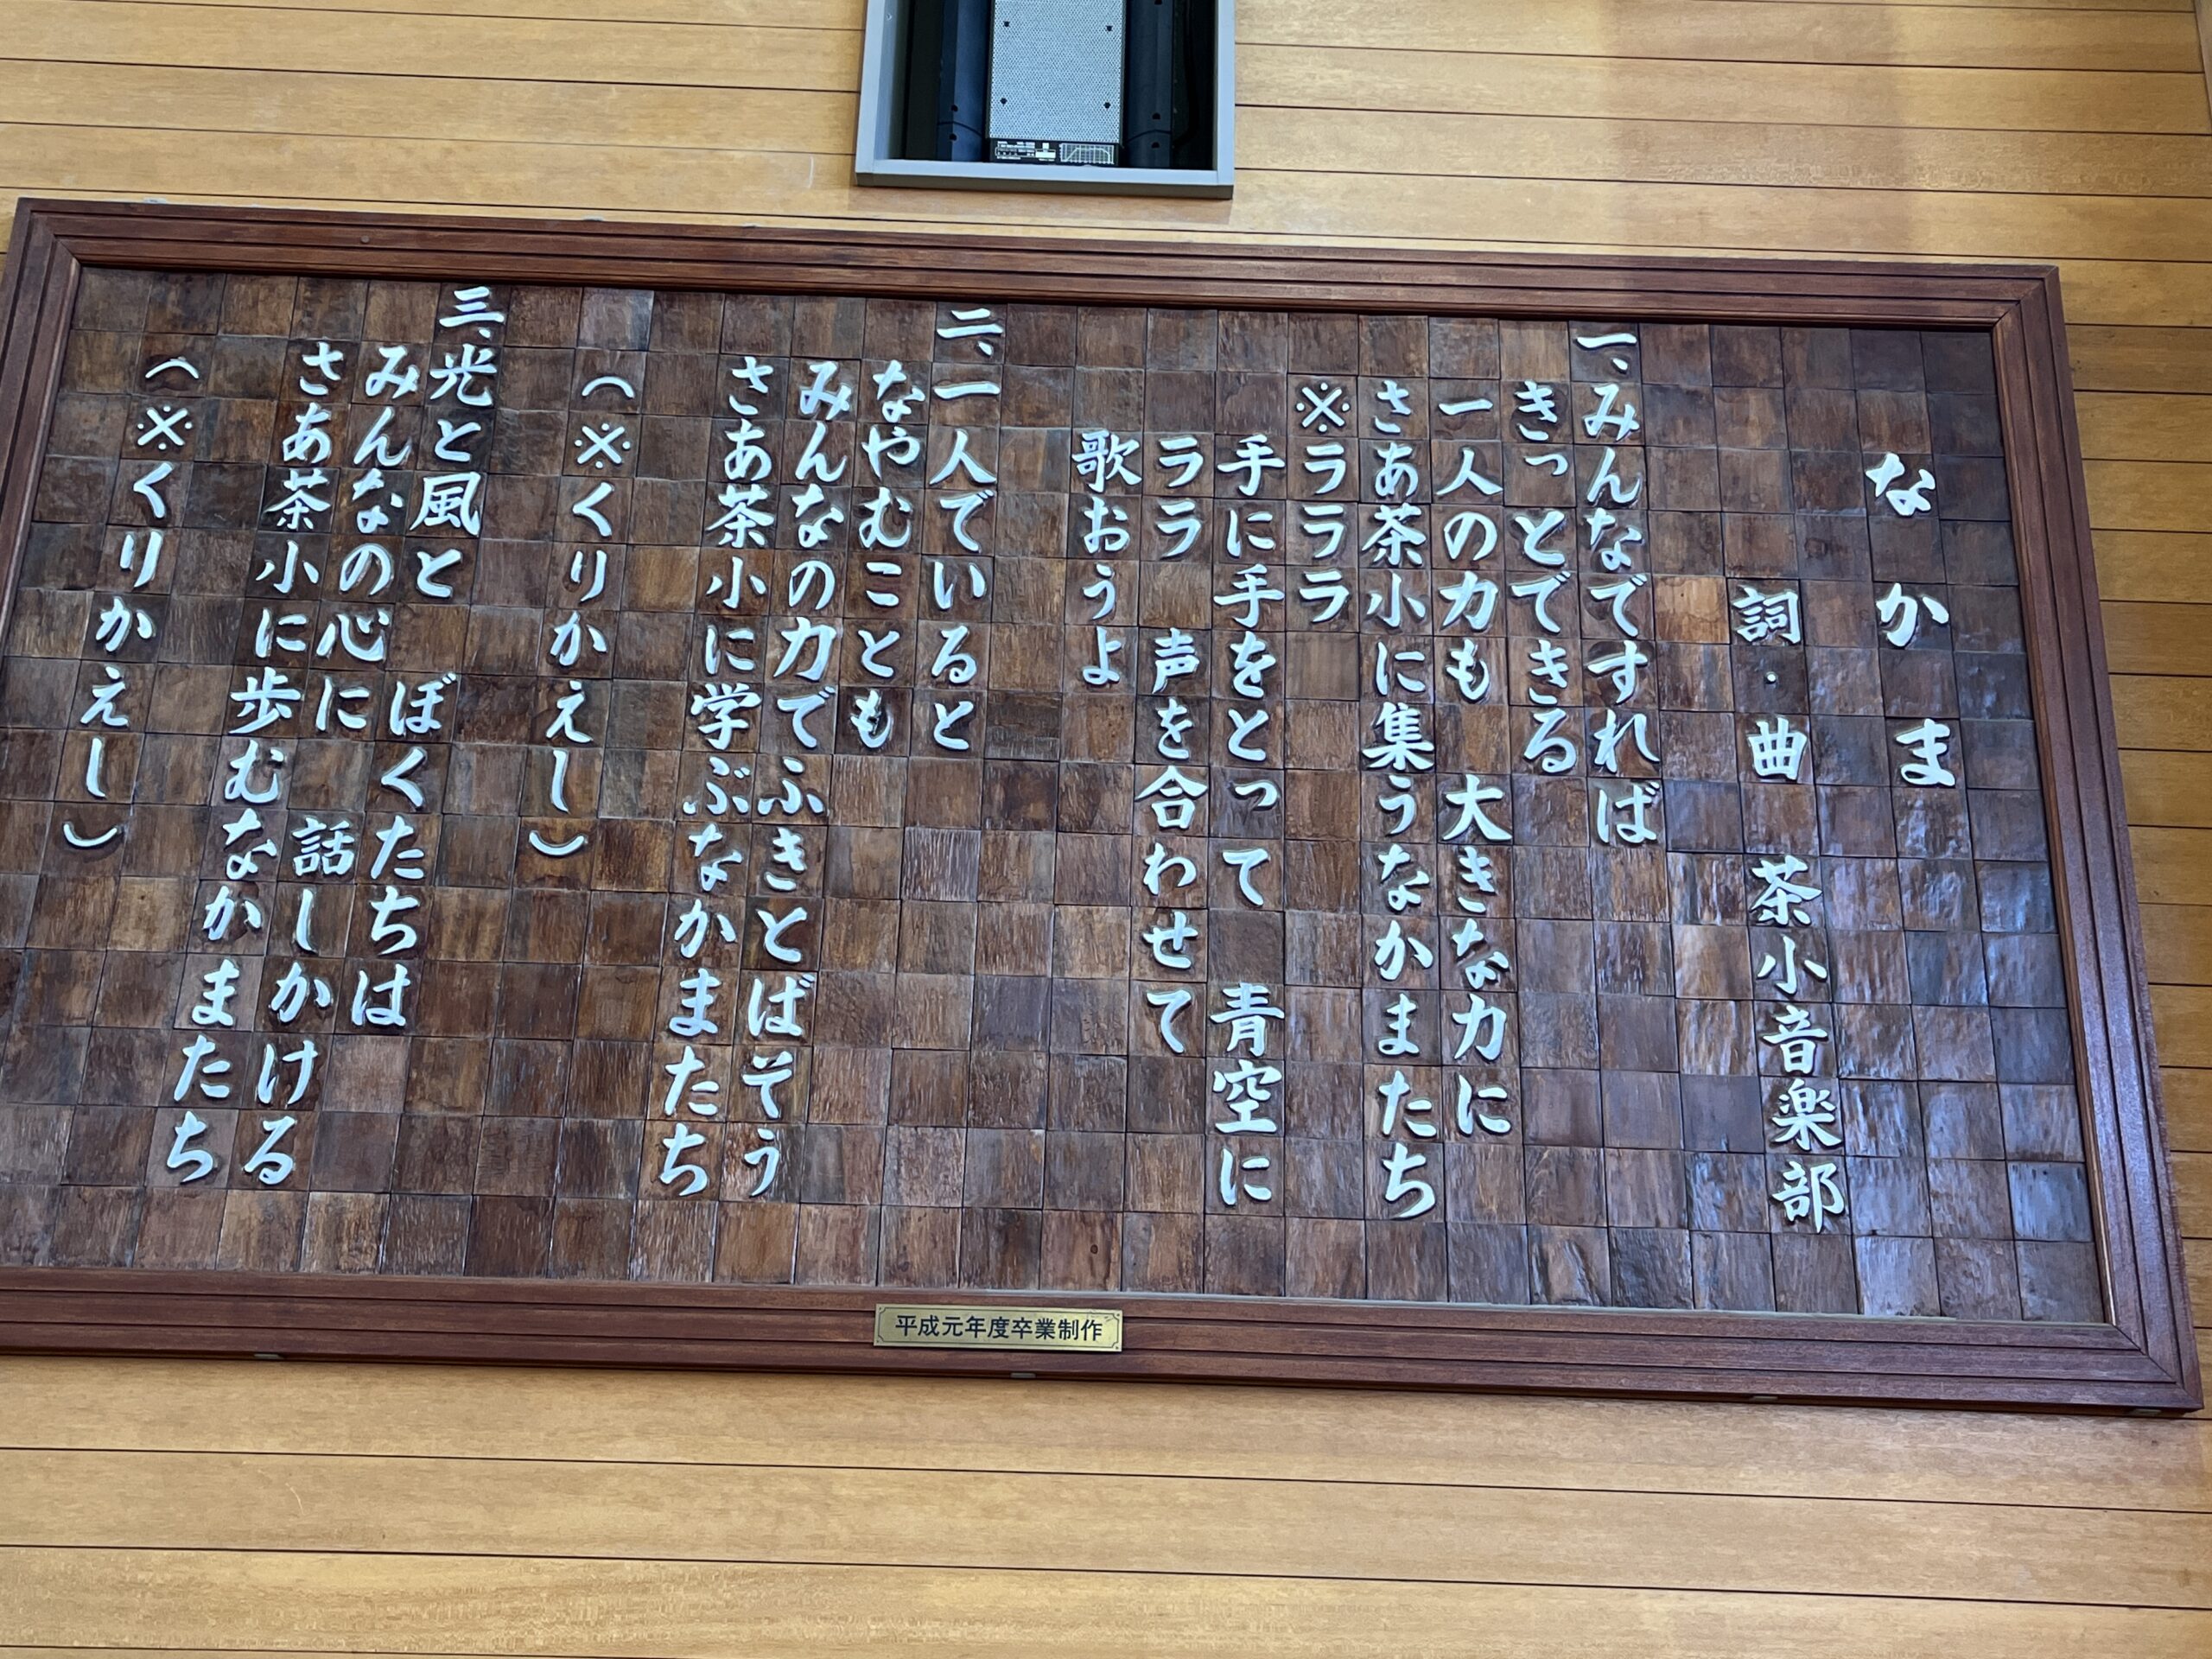 なかま
詞・曲 茶小音楽部
一、みんなですれば
きっとできる
一人の力も 大きな力に
さあ茶小に集うなかまたち
※ラララ
手に手をとって 青空に
ララ 声を合わせて
歌おうよ
二、一人でいると
なやむことも
みんなの力でふきとばそう
さあ茶小に学ぶなかまたち
(※くりかえし)
三、光と風と ぼくたちは
みんなの心に 話しかける
さあ茶小に歩むなかまたち
(※くりかえし)
平成元年度卒業制作